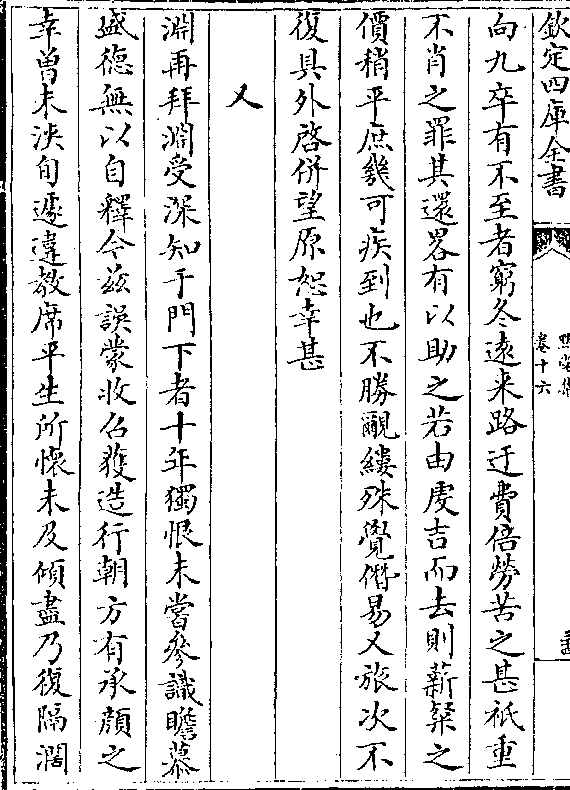 欽定四庫全書
卷十六
向九卒有不至者窮冬遠来路迂費倍勞苦之甚祇重
不肖之罪其還畧有以助之若由處吉而去則薪粲之
價稍平庶幾可疾到也不勝覼縷殊覺僭易又旅次不
復具外啓併望原恕幸甚
又
淵再拜淵受深知于門下者十年獨恨未嘗參識瞻慕
盛德無以自釋今兹誤蒙收召獲造行朝方有承顔之
幸曽未浹旬遽違教席平生所懐未及傾盡乃復隔濶